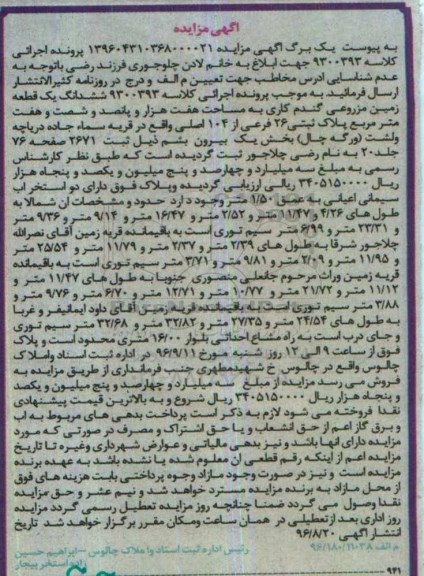 آگهی مزایده
به پیوست یک برگ آگهی مزایده ۱۳۹۶۰۴۳۱۰۳۶۸۰۰۰۰۲۱ پرونده اجرائی
کلاسه ۹۳۰۰۳۹۳ جهت ابلاغ به خانم لادن چلوجوری فرزند رضی باتوجه به
عدم شناسایی آدرس مخاطب جهت تعیین م الف و درج در روزنامه کثیرالانتشار
ارسال فرمائید. به موجب پرونده اجرائی کلاسه ۹۳۰۰۳۹۳ ششدانگ یک قطعه
زمین مزروعی گندم کاری به مساحت هفت هزار و پانصد و شصت و هفت
متر مربع پلاک ثبتی ۲۶ فرعی از ۱۰۴ اصلی واقع در قریه سماء جاده دریاچه
ولشت (ورگه چال) بخش یک بیرون بشم ذیل ثبت ۲۶۷۱ صفحه ۷۶
جلد ۲۰ به نام رضی چلاجور ثبت گردیده است که طبق نظر کارشناس
رسمی به مبلغ سه میلیارد و چهارصد و پنج میلیون و یکصد و پنجاه هزار
ریال ۳۴۰۵۱۵۰۰۰۰ ریالی ارزیابی گردیده وپلاک فوق دارای دو استخر آب
سیمانی اعیانی به عمق ۱/۵۰ متر وجود دارد حدود و مشخصات آن شمالا به
طول های ۴/۲۶ و ۱۱/۴۷ متر و ۲/۵۲ متر و ۱۶/۴۷ متر و ۹/۱۴ متر و ۹/۳۶ متر
و ۲۳/۳۱ متر و ۶/۹۹ متر سیم توری است به باقیمانده قریه زمین آقای نصرالله
چلاجور شرقا به طول های ۲/۳۹ متر و ۲/۳۷ متر و ۱۱/۷۹ متر و ۲۵/۵۴ متر
و ۱۱/۹۵ متر و ۲/۰۹ متر و ۹/۸۱ متر و ۳/۷۱ متر سیم توری است به باقیمانده
قریه زمین وراث مرحوم جانعلی منصوری جنوبا به طول های ۱۱/۴۷ متر و
۱۱/۱۲ متر و ۲۱/۷۲ متر و ۱۰/۷۷ متر و ۱۲/۷۱ متر و ۶/۷۰ متر و ۹/۷۶ متر و
۳/۸۸ متر سیم توری است به باقیمانده قریه زمین آقای داود ایمانیفر و غربا
به طول های ۲۴/۵۴ متر و ۲۷/۳۵ متر و ۳۲/۸۲ متر و ۳۲/۶۸ متر سیم توری
و جای درب است به راه مشاع احداثی بلوار ۱۶/۰۰ متری محدود است و پلاک
فوق از ساعت ۹ الی ۱۲ روز شنبه مورخ ۹۶/۹/۱۱ در اداره ثبت اسناد واملاک
چالوس واقع در چالوس خ شهیدمطهری جنب فرمانداری از طریق مزایده به
فروش می رسد مزایده از مبلغ سه میلیارد و چهارصد و پنج میلیون و یکصد
و پنجاه هزار ریال ۳۴۰۵۱۵۰۰۰۰ ریال شروع و به بالاترین قیمت پیشنهادی
نقدا فروخته می شود لازم به ذکر است پرداخت بدهی های مربوط به آب
و برق گاز اعم از حق انشعاب و یا حق اشتراک و مصرف در صورتی که مورد
مزایده دارای آنها باشد و نیز بدهی مالیاتی و عوارض شهرداری وغیره تا تاریخ
مزایده اعم از اینکه رقم قطعی آن معلوم شده یا نشده باشد به عهده برنده
مزایده است و نیز در صورت وجود مازاد وجوه پرداختی بابت هزینه های فوق
از محل مازاد به برنده مزایده مسترد خواهد شد و نیم عشر و حق مزایده
نقدا وصول می گردد ضمنا چنانچه روز مزایده تعطیل رسمی گردد مزایده
روز اداری بعد از تعطیلی در همان ساعت ومکان مقرر برگزار خواهد شد تاریخ
انتشار آگهی ۹۶/۸/۲۰
م الف ۹۶/۱۸۰/۱۱۰۳۸ رئیس اداره ثبت اسناد وا ملاک چالوس – ابراهیم حسین
زاده استخر بیجار
۹۴۱